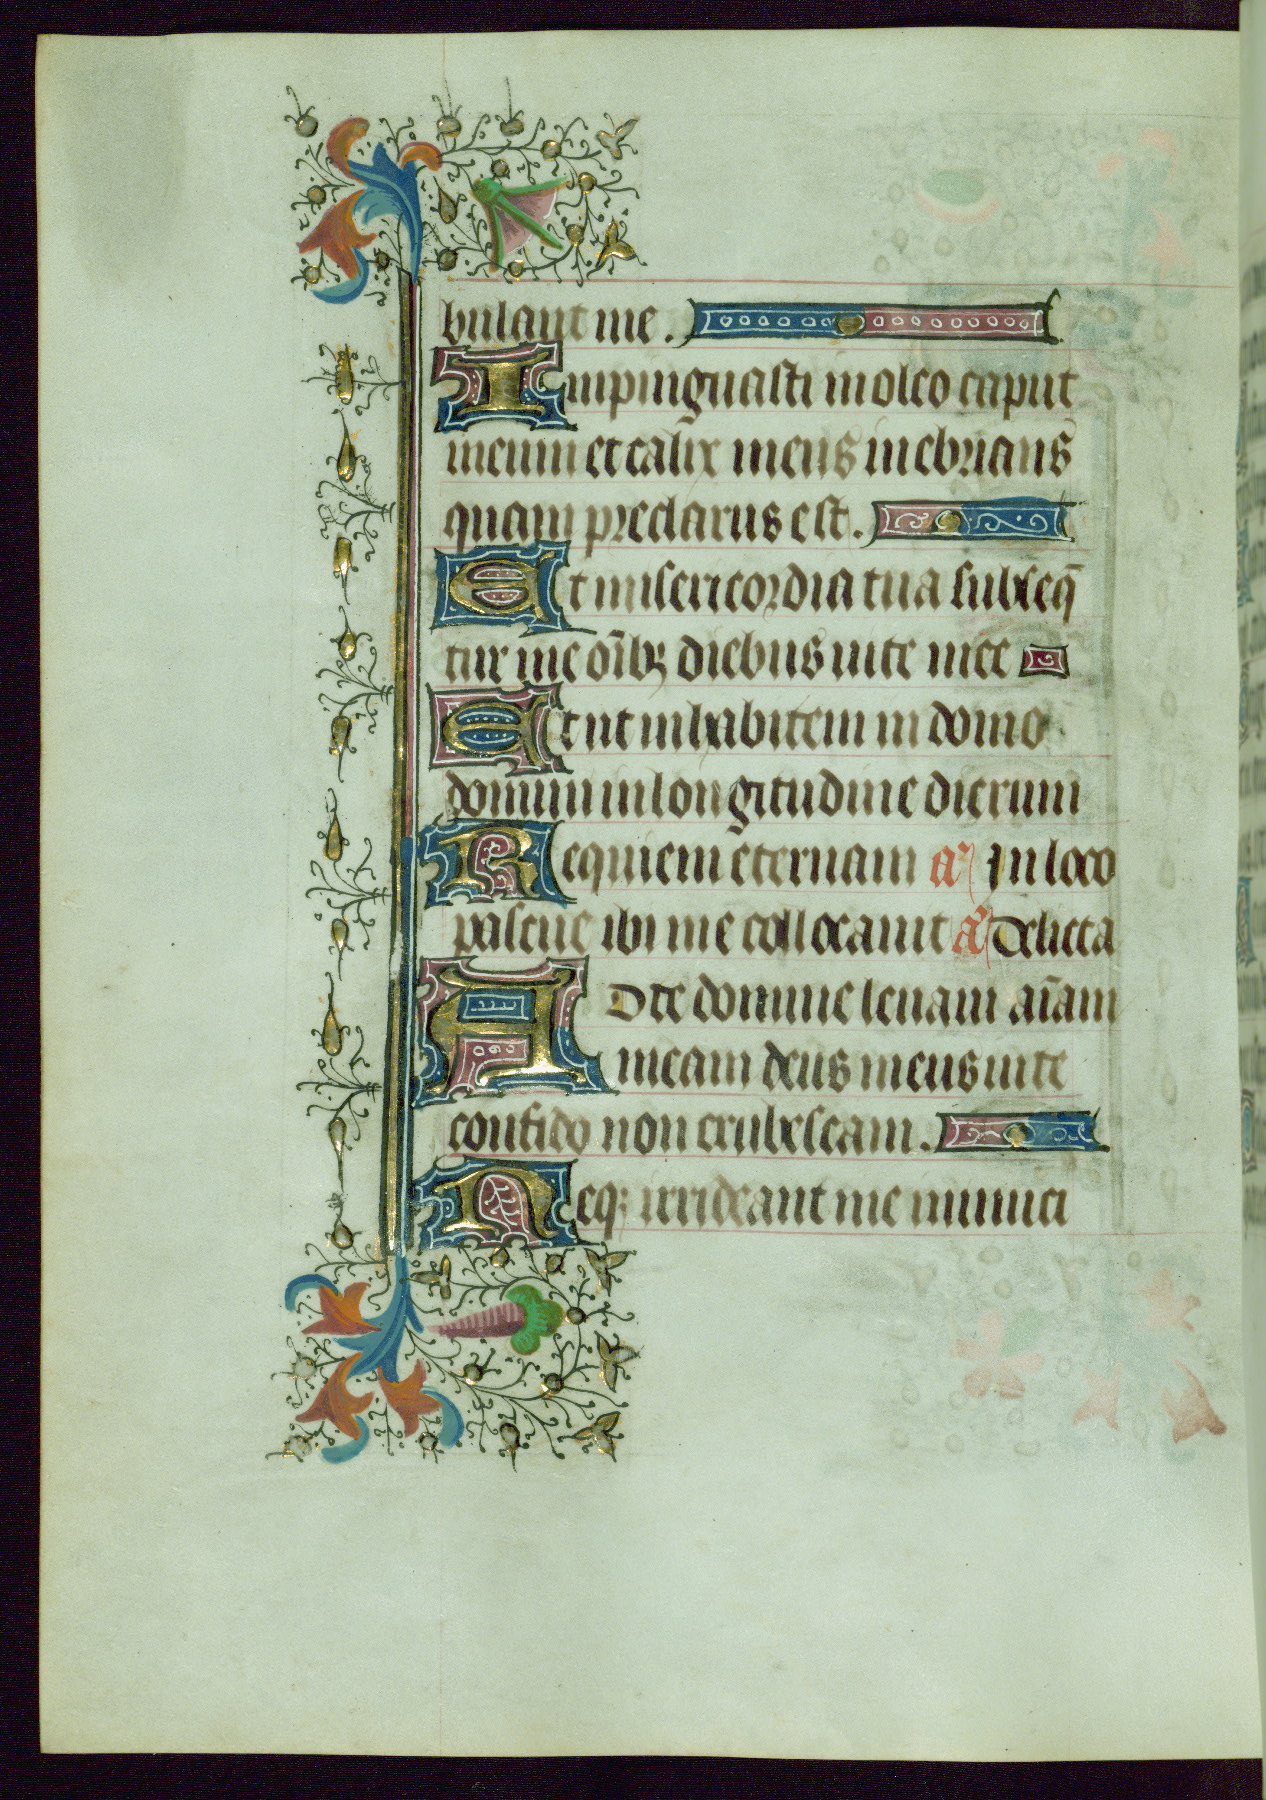 bulant me.
Impinguasti in oleo caput
meum et calix meus inebrians
quam preclarus est.
Et misericordia tua subseq̄
tur me oībꝫ diebus uite mee
Et ut inhabitem in domo
domini in longitudine dierum
Requiem eternam a᷑ In loco
pascue ibi me collocauit a᷑ Delicta
AD te domine leuaui aīam
meam deus meus in te
confido non erubescam.
Neqꝫ irrideant me inimici